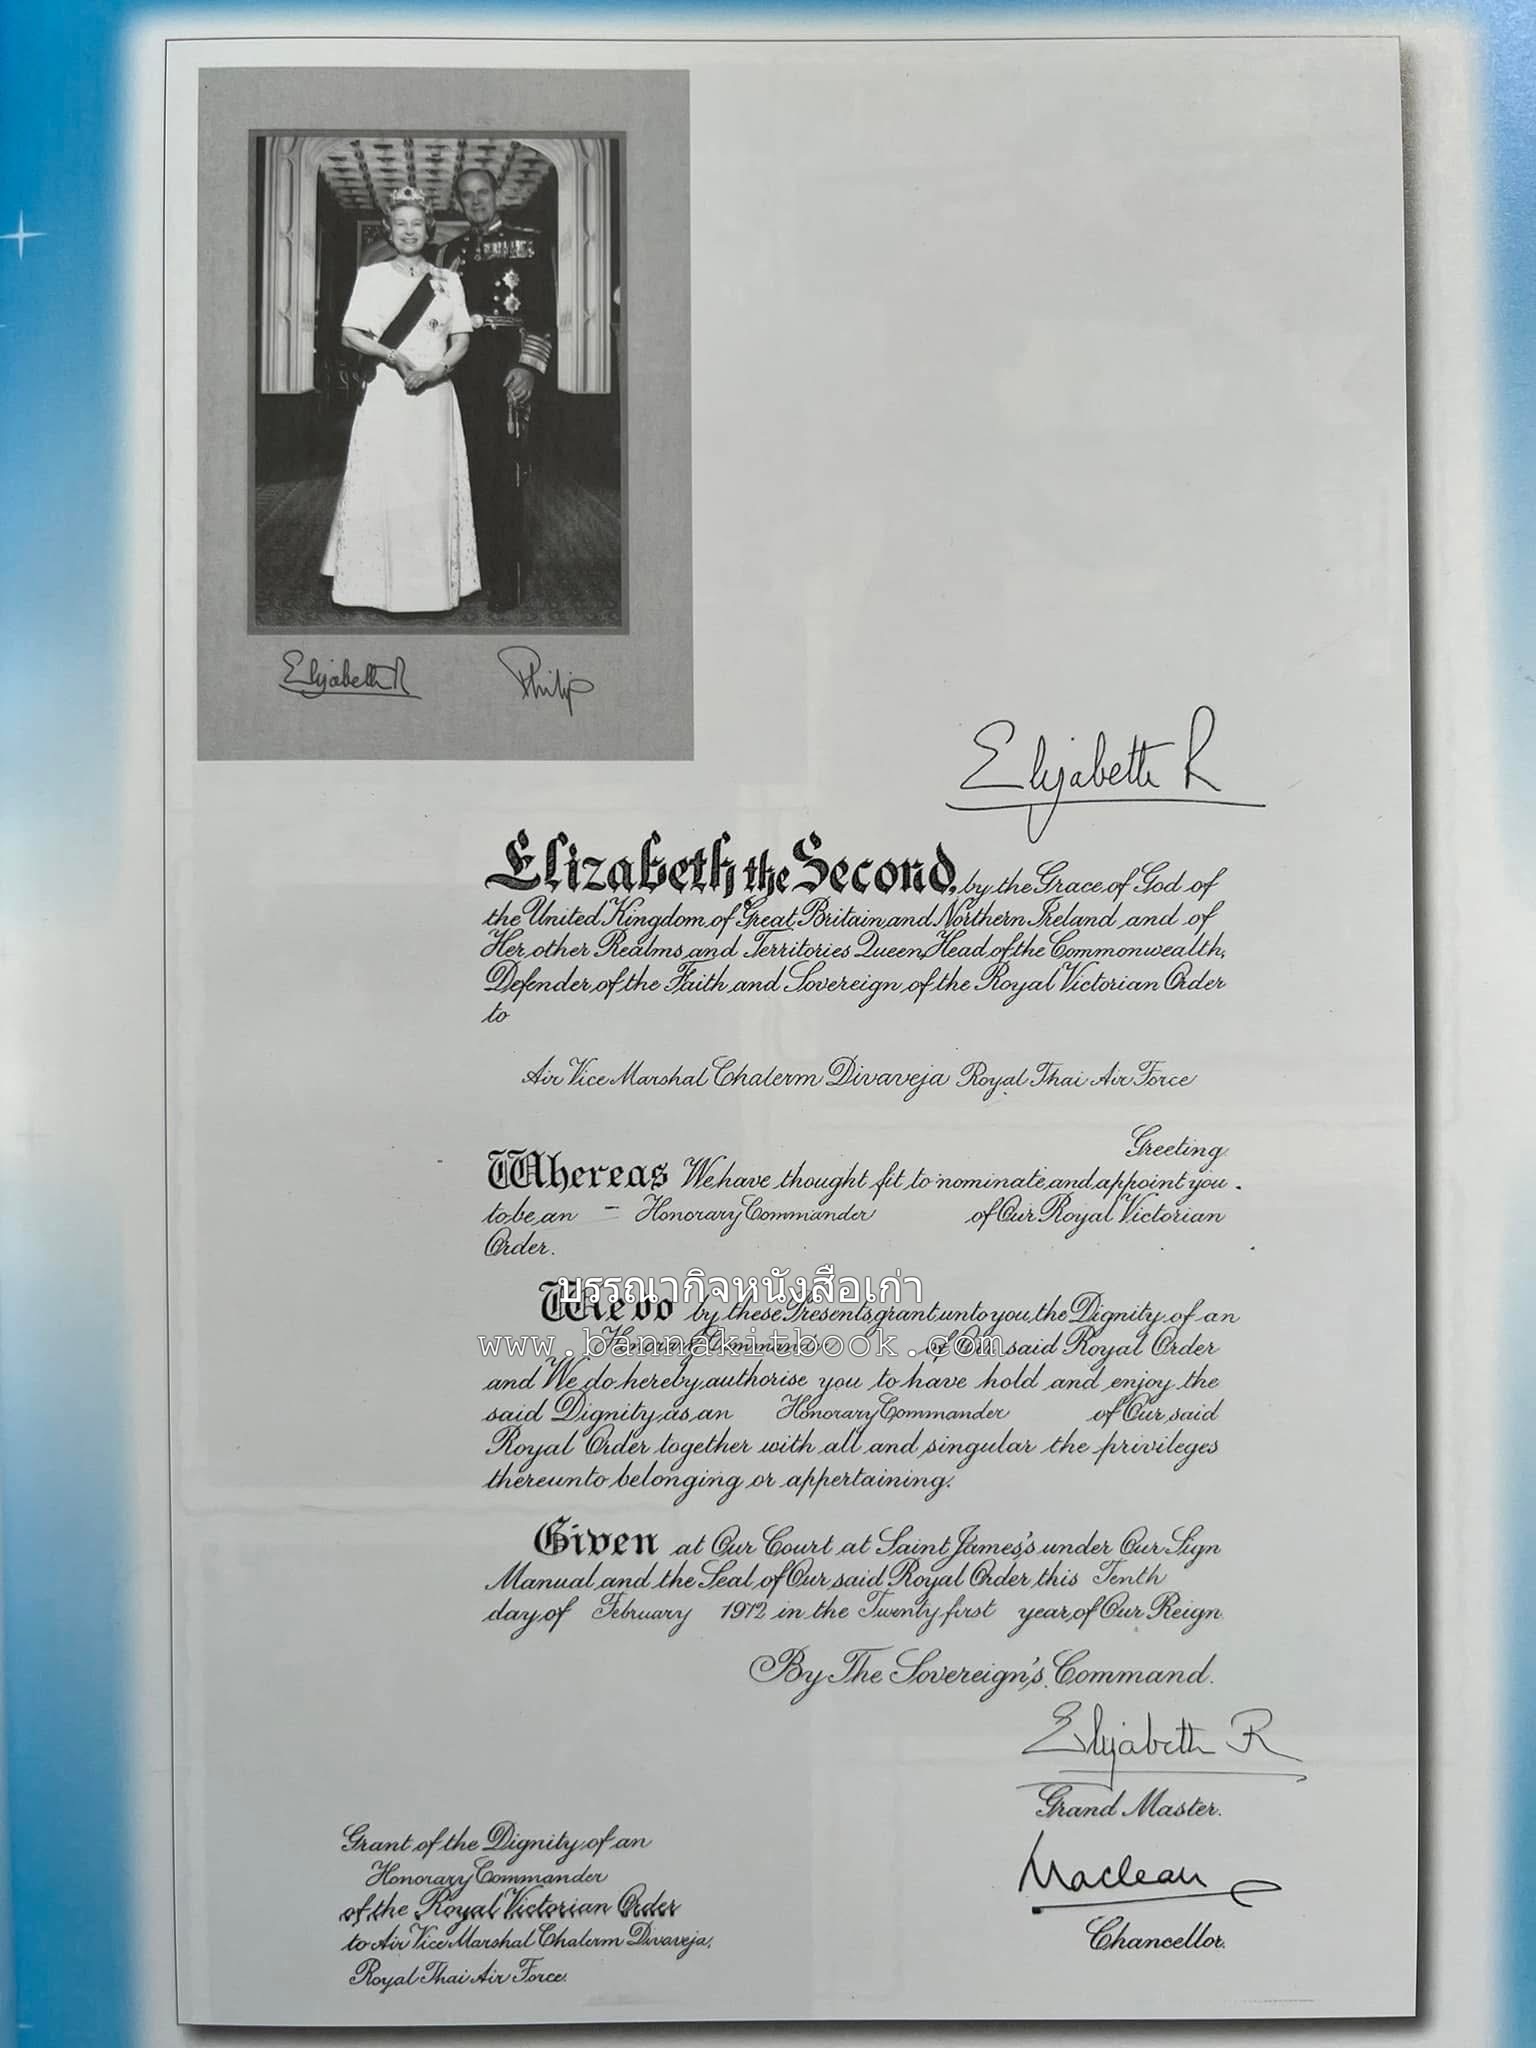 Elizabeth R
Philip
Elizabeth R
Elizabeth the Second, by the Grace of God of
the United Kingdom of Great Britain and Northern Ireland and of
Her other Realms and Territories Queen, Head of the Commonwealth,
Defender of the Faith and Sovereign of the Royal Victorian Order
to
Air Vice Marshal Chalerm Divaveja Royal Thai Air Force
Greeting
Whereas We have thought fit to nominate and appoint you
to be an - Honorary Commander of Our Royal Victorian
Order.
บรรณากิจหนังสือเก่า
We do by these Presents grant unto you the Dignity of an
www.bannakitbook.com
Honorary Commander of Our said Royal Order
and We do hereby authorise you to have hold and enjoy the
said Dignity as an Honorary Commander of Our said
Royal Order together with all and singular the privileges
thereunto belonging or appertaining.
Given at Our Court at Saint James's under Our Sign
Manual and the Seal of Our said Royal Order this Tenth
day of February 1972 in the Twenty first year of Our Reign
By The Sovereign's Command.
Elizabeth R
Grand Master.
Maclean
Chancellor.
Grant of the Dignity of an
Honorary Commander
of the Royal Victorian Order
to Air Vice Marshal Chalerm Divaveja,
Royal Thai Air Force.